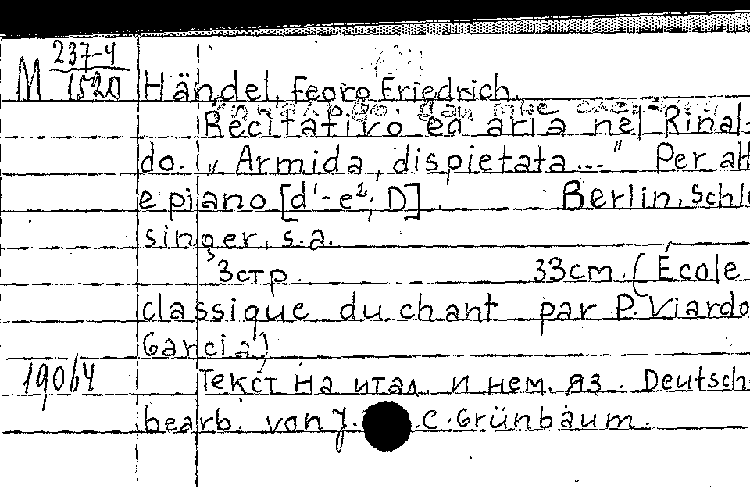 М 237-4
1520
Händel, Georg Friedrich.
Recitativo ed aria nel Rinal-
do. „Armida, dispietata..." Per alt
e piano [d¹-e², D]. Berlin, Schle-
singer, s.a.
3 стр. 33 cm. (École
classique du chant par P. Viardo
Garcia)
19064
Текст на итал. и нем. яз. Deutsch
bearb. von J. C. Grünbaum.